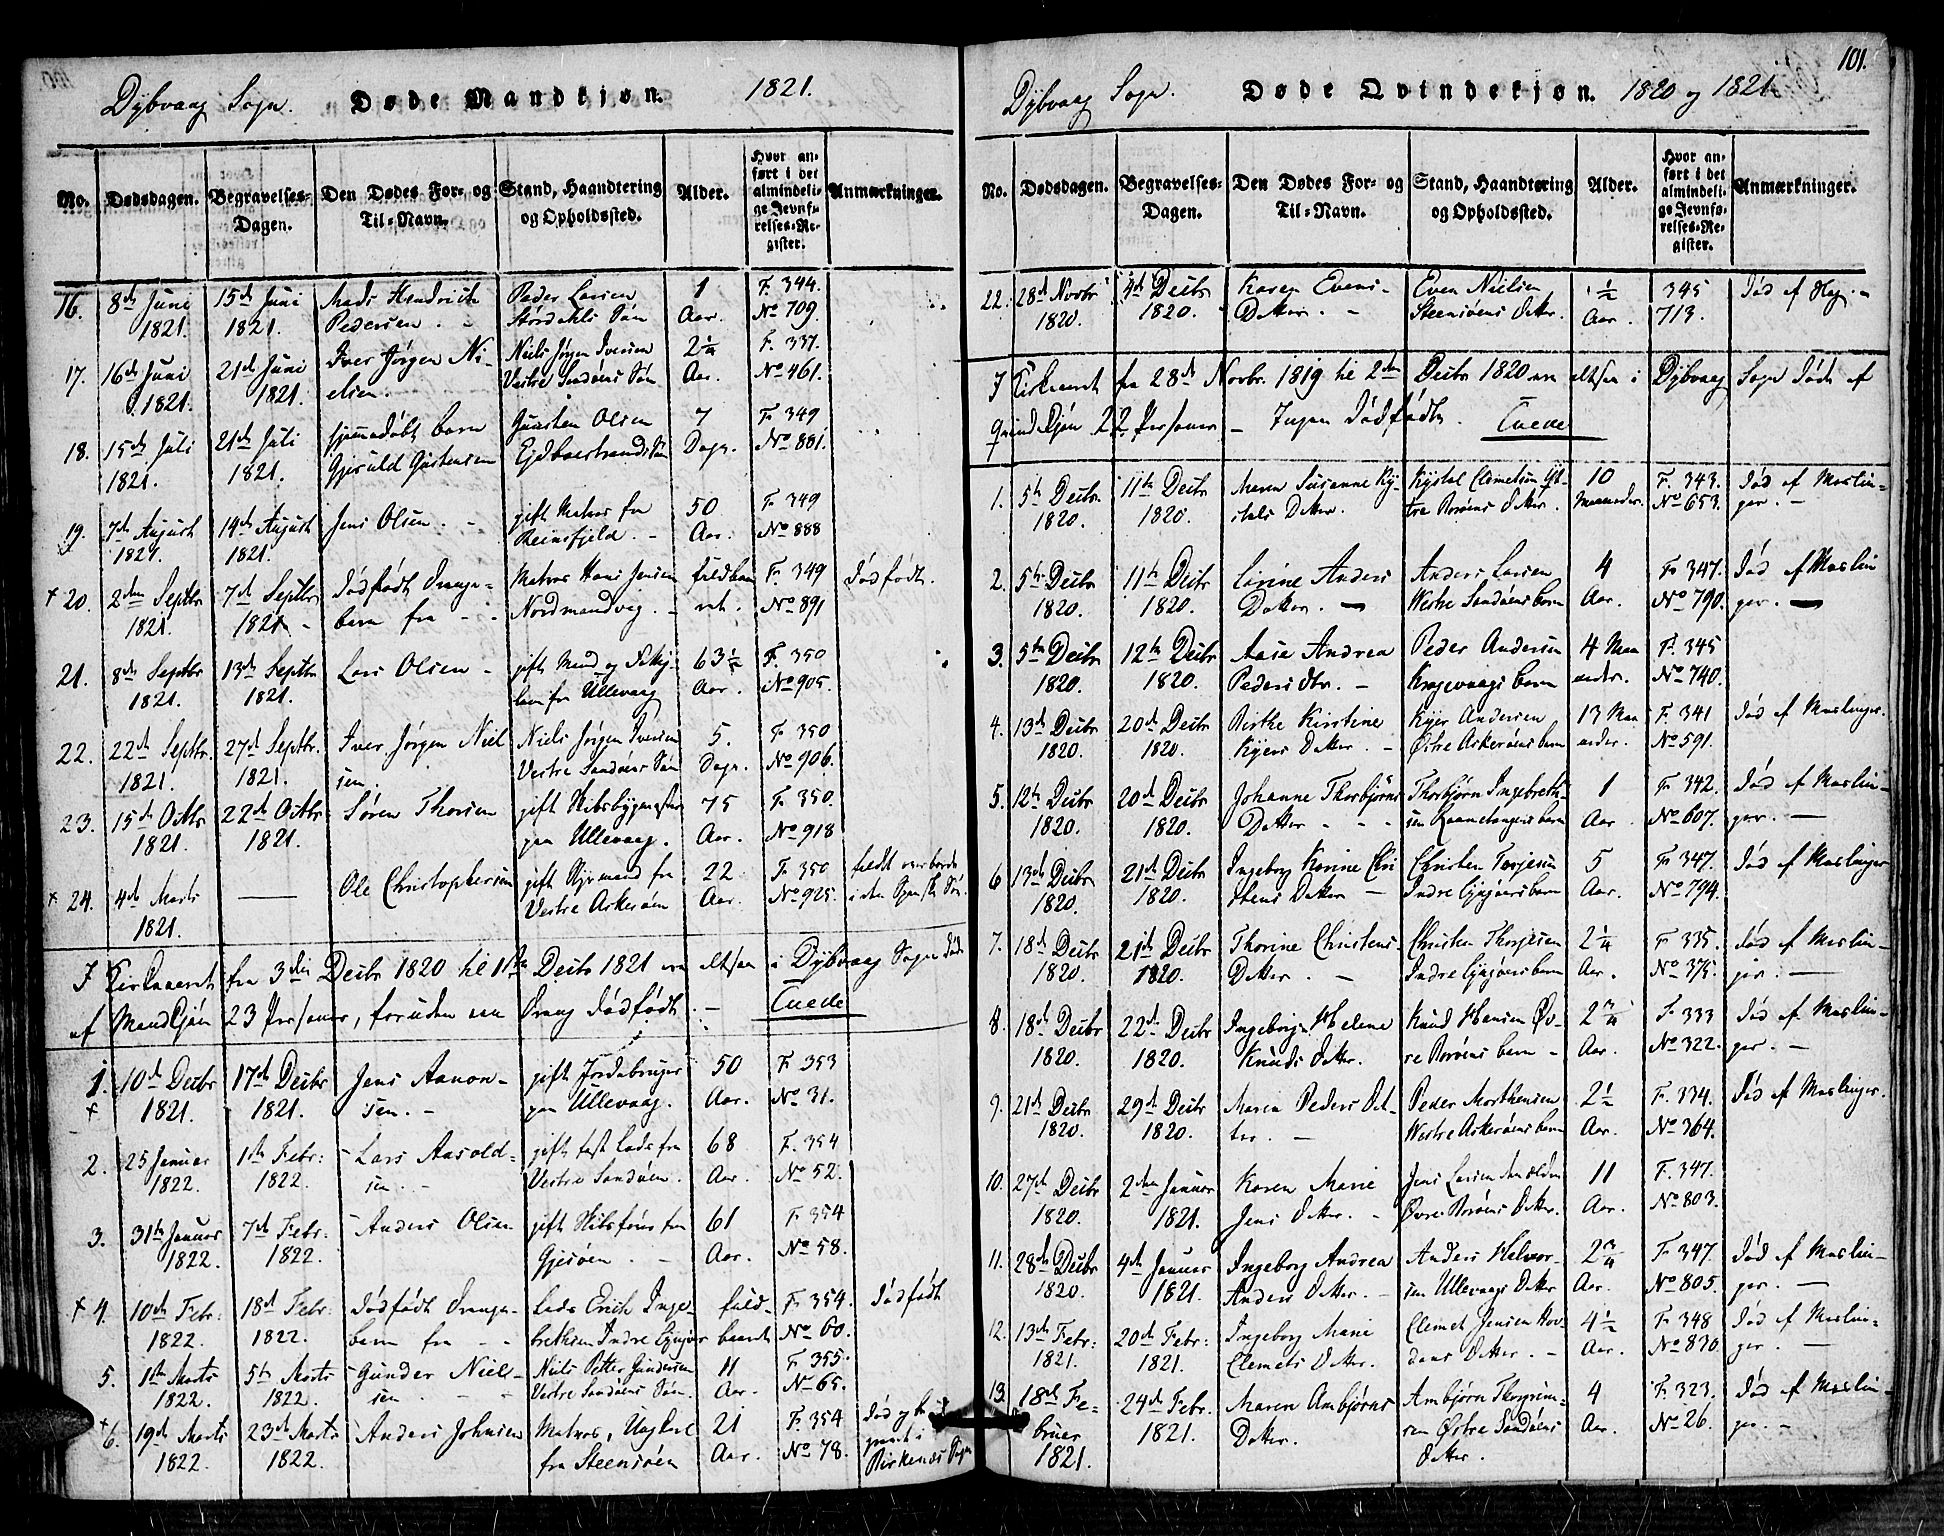 Dybvaag Sogn. Døde Mandkjøn. 1821.
No. Dødsdagen. Begravelses-Dagen. Den Dødes For- og Til-Navn. Stand, Haandtering og Opholdssted. Alder. Hvor anført i det almindelige Jevnførelses-Register. Anmærkninger.
16. 8de Juni 1821. 15de Juni 1821. Mads Hendrich Pedersen. Peder Larsen Størdahls Søn 1 Aar. F. 344. No 709.
17. 16de Juni 1821. 21de Juni 1821. Iver Jørgen Nielsen. Niels Jørgen Iversen Vestre Sandøens Søn 2 1/4 Aar. F. 337. No 461.
18. 15de Juli 1821. 21de Juli 1821. hjemmedøbt barn Gjeruld Gustensen Gunsten Olsen 7 Dage. F. 349 No 881.
19. 7de August 1821. 14de August 1821. Jens Olsen. gift Matros fra Reinsfjeld. 50 Aar. F. 349 No 888
+ 20. 2den Septbr 1821. 7de Septbr 1821 Dødfødt Drengebarn fra Matros Hans Jensen Nordmandvig. fuldbaaret. F. 349 No 891 Dødfødt.
21. 8de Septbr 1821. 13de Septbr 1821. Lars Olsen gift Mand og fra Ullevaag 63 1/2 Aar. F. 350 No 905.
22. 22de Septbr. 1821. 27de Septbr. 1821. Iver Jørgen Nielsen Niels Jørgen Iversen Vestre Sandøens Søn 5. Dage. F. 350 No 906.
23. 15de Octbr 1821. 22de Octbr 1821. Søren Thorsen gift Skibsbygmester paa Ullevaag. 75 Aar. F. 350. No 918
+ 24. 4de Marts 1821. Ole Christophersen gift Styrmand fra Vestre Askerøen 22 Aar. F. 350 No 925. faldt overbord i den Spanske Søe
I Kirkeaaret fra 3die Decbr 1820 til 1ste Decbr 1821 ere altsaa i Dybvaag Sogn døde
af Mandkjøn 23 Personer, foruden een Dreng Dødfødt. Tuede
1. + 10de Decbr 1821. 17de Decbr 1821. Jens Aanonsen. gift Jordebruger paa Ullevaag. 50 Aar. F. 353 No 31.
2. 25 Januar 1822. 1ste Febr: 1822. Lars Aasoldsen. gift fra Vestre Sandøen. 68 Aar. F. 354 No 52.
3. 31te Januar 1822. 7de Febr. 1822. Anders Olsen gift fra Gjesøen 61 Aar. F. 354 No 58.
+ 4. 10de Febr: 1822. 18de Febr. 1822. Dødfødt Drengebarn fra Lods Erich Ingebrethsen Indre fuldbaaret F. 354. No 60. Dødfødt
5. 1ste Marts 1822. 5te Marts 1822. Gunder Nielsen Niels Petter Gundersen Vestre Sandøens Søn. 11 Aar. F. 355. No 65.
+ 6. 19de Marts 1822. 23de Marts 1822. Anders Johnsen Matros, Ungkarl fra Steensøen 21 Aar. F. 354 No 78. Død og begravet i Birkenæs Sogn
101.
Dybvaag Sogn. Døde Qvindekjøn. 1820 og 1821
No. Dødsdagen. Begravelses-Dagen. Den Dødes For- og Til-Navn. Stand, Haandtering og Opholdssted. Alder. Hvor anført i det almindelige Jevnførelses-Register. Anmærkninger.
22. 28de Novbr 1820. 4de Decbr 1820. Karen Evens Datter. Even Nielsen Steensøens Datter. 1/2 Aar. 345 713. Død af
I Kirkeaaret fra 28de Novbr. 1819 til 2den Decbr 1820 ere altsaa i Dybvaag Sogn døde af
Qvindekjøn 22 Personer Ingen Dødfødte. Tuede
1. 5te Decbr. 1820. 11te Decbr 1820. Maren Susanne Kystels Datter. Kystel Clemetsen Datter. 10 Maaneder. F. 343. No 653. Død af Mæslinger.
2. 5te Decbr 1820. 11te Decbr 1820. Sirine Anders Datter. Anders Larsen Vestre Sandøens barn 4 Aar. F. 347. No 790. Død af Mæslinger.
3. 5te Decbr 1820. 12te Decbr 1820. Aase Andrea Peders dtr. Peder Andersen Krogevaags barn 4 Maaneder. F. 345 No 740.
4. 13de Decbr 1820. 20de Decbr 1820. Birthe Kirstine Kjers Datter. Kjer Andersen Østre Askerøens barn 13 Maaneder. F. 341 No 591. Død af Mæslinger.
5. 12te Decbr 1820. 20de Decbr 1820. Johanne Thorbjørns Datter Thorbjørn Ingebrethsen barn 1 Aar. F. 342. No 607. Død af Mæslinger.
6 13de Decbr 1820. 21de Decbr 1820. Ingeborg Karine Christens Datter Christen Torjesen Indre barn 5 Aar. F. 347. No 794. Død af Mæslinger
7. 18de Decbr 1820. 21de Decbr 1820. Thorine Christens Datter. Christen Thorjesen Indre barn 2 1/4 Aar. F. 335. No 375. Død af Mæslinger.
8. 18de Decbr 1820. 22de Decbr 1820. Ingeborg Helene Knuds Datter. Knud Hansen Øvre Borøens barn 2 3/4 Aar. F. 333 No 322. Død af Mæslinger.
9. 21de Decbr 1820. 29de Decbr 1820. Maren Peders Datter. Peder Morthensen Vestre Askerøens barn 2 1/2 Aar. F. 334. No 364. Død af Mæslinger.
10. 27de Decbr 1820. 2den Januar 1821. Karen Marie Jens Datter. Jens Larsen den ældre Øvre Borøens Datter. 11 Aar. F. 347. No 803.
11. 28de Decbr 1820. 4de Januar 1821. Ingeborg Andrea Anders Datter. Anders Halvorsen Ullevaags Datter 2 3/4 Aar. F. 347. No 805. Død af Mæslinger.
12. 13de Febr: 1821. 20de Febr: 1821. Ingeborg Marie Clemets Datter. Clemet Jensen Datter. 4 1/2 Aar. F. 348 No 830. Død af Mæslinger.
13. 18de Februar 1821. 24de Febr. 1821. Maren Ambjørns Datter. Ambjørn Thorgrimsen Østre Sandøens Datter. 4 Aar. F. 323. No 26. Død af Mæslinger.